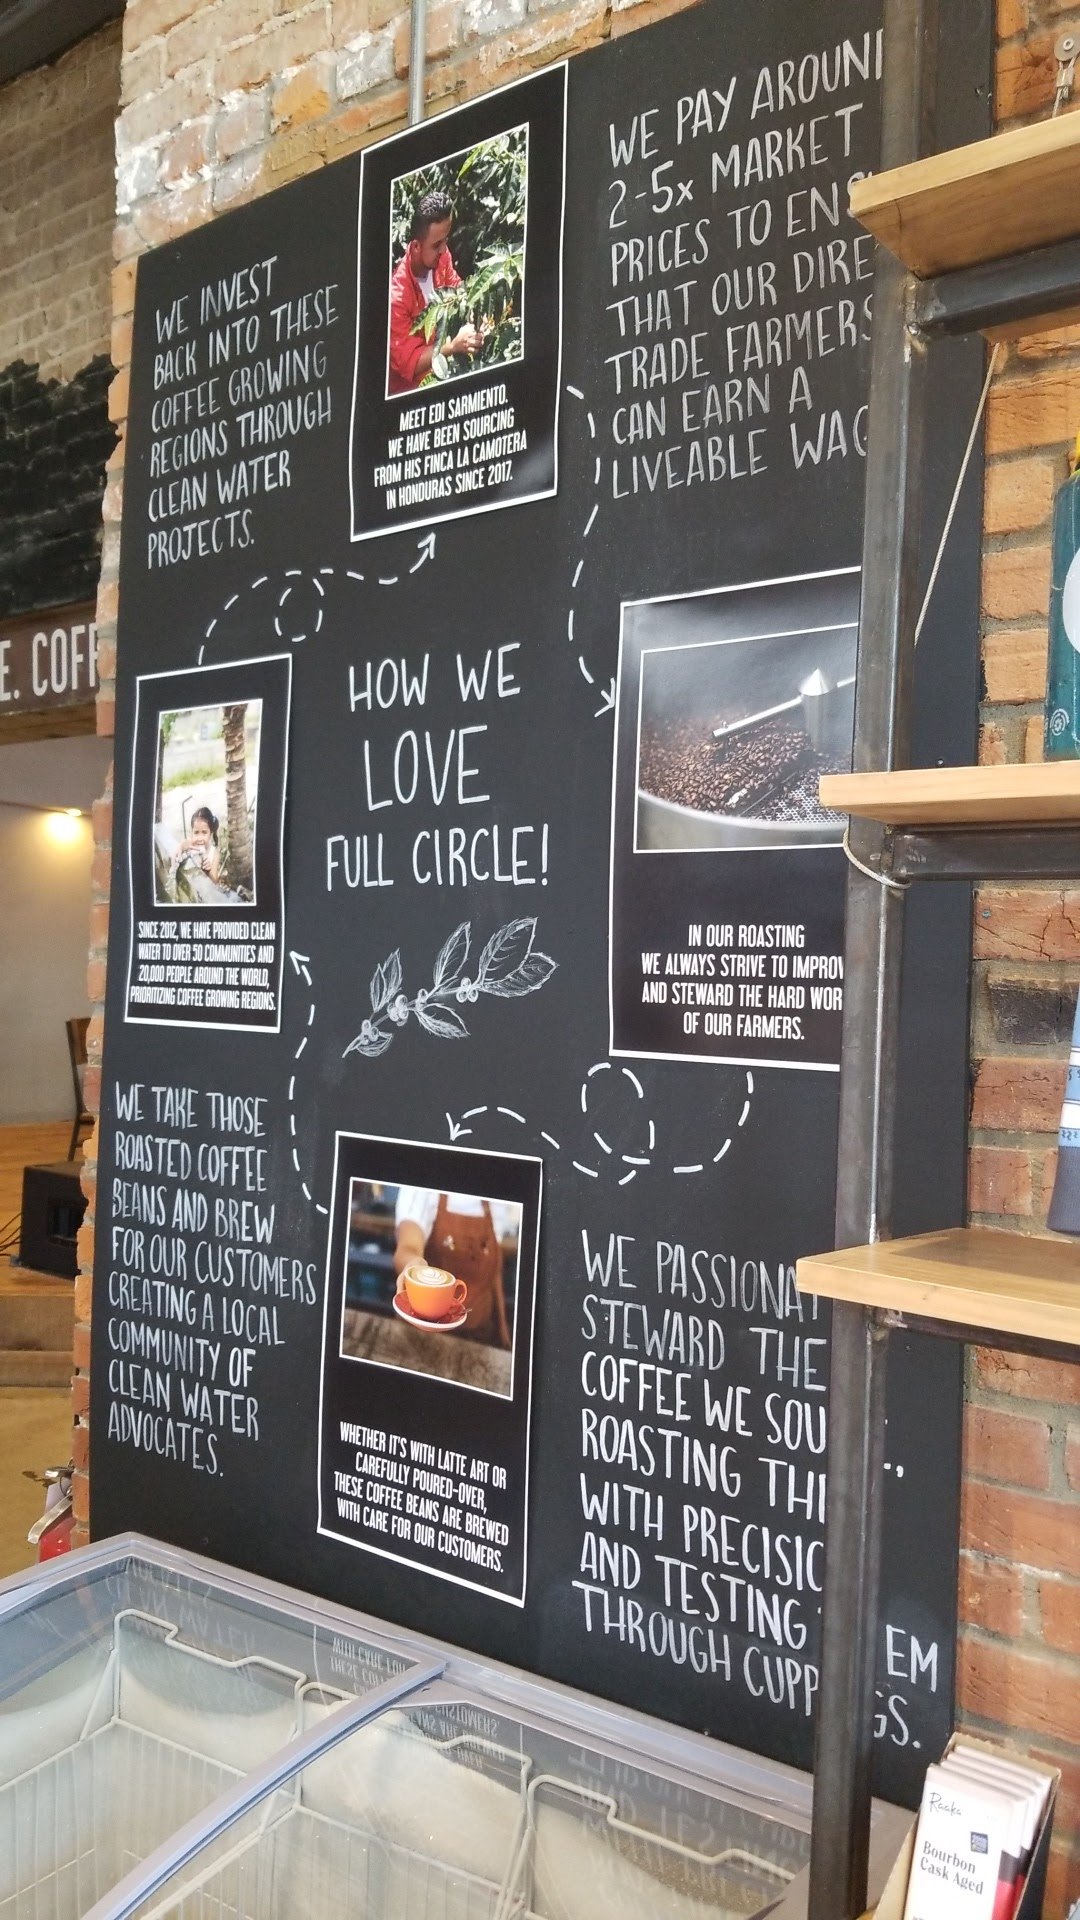 WE INVEST
BACK INTO THESE
COFFEE GROWING
REGIONS THROUGH
CLEAN WATER
PROJECTS.
MEET EDI SARMIENTO.
WE HAVE BEEN SOURCING
FROM HIS FINCA LA CAMOTERA
IN HONDURAS SINCE 2017.
WE PAY AROUN
2-5x MARKET
PRICES TO ENS
THAT OUR DIRE
TRADE FARMERS
CAN EARN A
LIVEABLE WAG
E. COFF
HOW WE
LOVE
FULL CIRCLE!
SINCE 2012, WE HAVE PROVIDED CLEAN
WATER TO OVER 50 COMMUNITIES AND
20,000 PEOPLE AROUND THE WORLD,
PRIORITIZING COFFEE GROWING REGIONS.
IN OUR ROASTING
WE ALWAYS STRIVE TO IMPROV
AND STEWARD THE HARD WOR
OF OUR FARMERS.
WE TAKE THOSE
ROASTED COFFEE
BEANS AND BREW
FOR OUR CUSTOMERS
CREATING A LOCAL
COMMUNITY OF
CLEAN WATER
ADVOCATES.
WHETHER IT'S WITH LATTE ART OR
CAREFULLY POURED-OVER,
THESE COFFEE BEANS ARE BREWED
WITH CARE FOR OUR CUSTOMERS.
WE PASSIONAT
STEWARD THE
COFFEE WE SOU ,
ROASTING TH
WITH PRECISIO
AND TESTING EM
THROUGH CUPP GS.
Raaka
Bourbon
Cask Aged